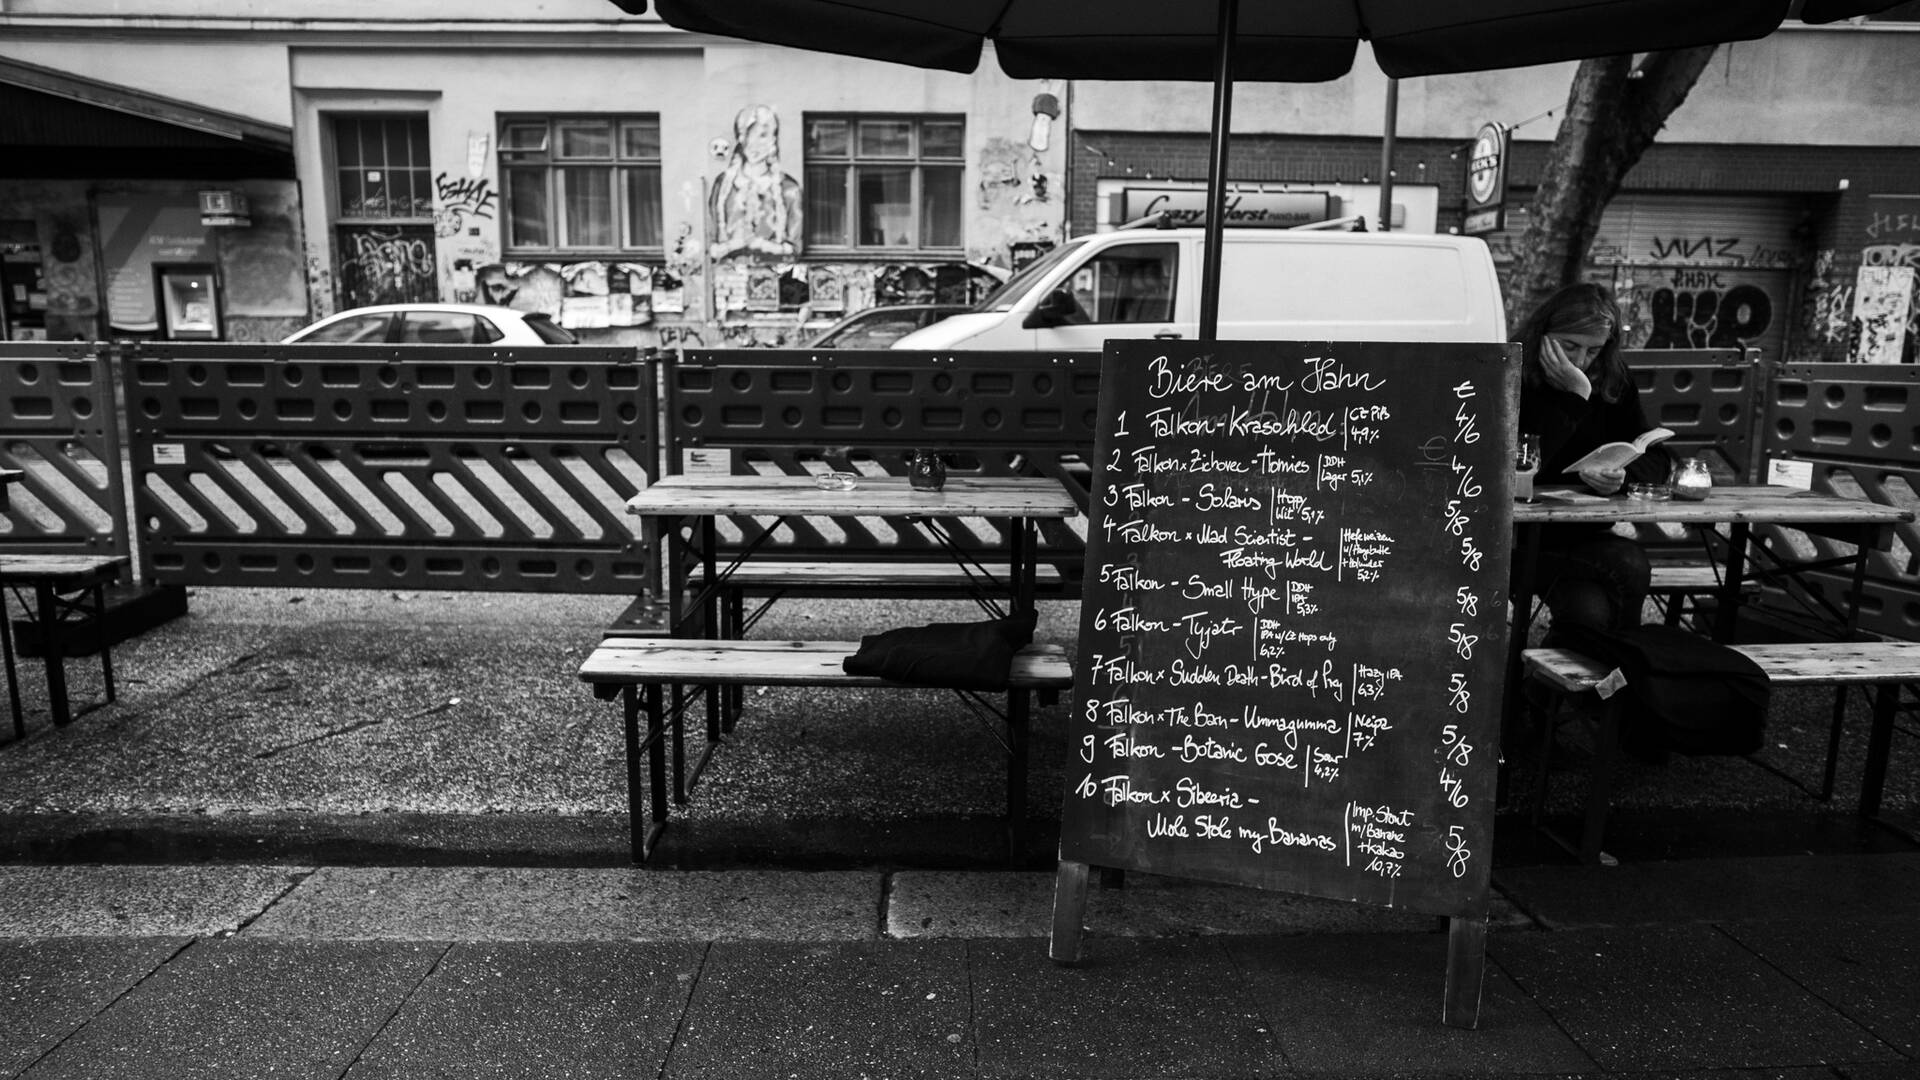 Crazy Horst PIANO-BAR
BECK'S
Biere am Hahn
€
1 Falkon - Krasohled | CZ Pils 4,9% 4/6
2 Falkon x Zichovec - Homies | DDH Lager 5,1% 4/6
3 Falkon - Solaris | Hoppy Wit 5,1% 5/8
4 Falkon x Mad Scientist -
Floating World | Hefeweizen w/ Hagebutte + Holunder 5,2% 5/8
5 Falkon - Small Hype | DDH IPA 5,3% 5/8
6 Falkon - Tyjátr | DDH IPA w/ CZ Hops only 6,2% 5/8
7 Falkon x Sudden Death - Bird of Prey | Hazy IPA 6,3% 5/8
8 Falkon x The Barn - Ummagumma | Neipa 7% 5/8
9 Falkon - Botanic Gose | Sour 4,2% 4/6
10 Falkon x Sibeeria -
Mole Stole my Bananas | Imp. Stout m/ Banane + Kakao 10,7% 5/8